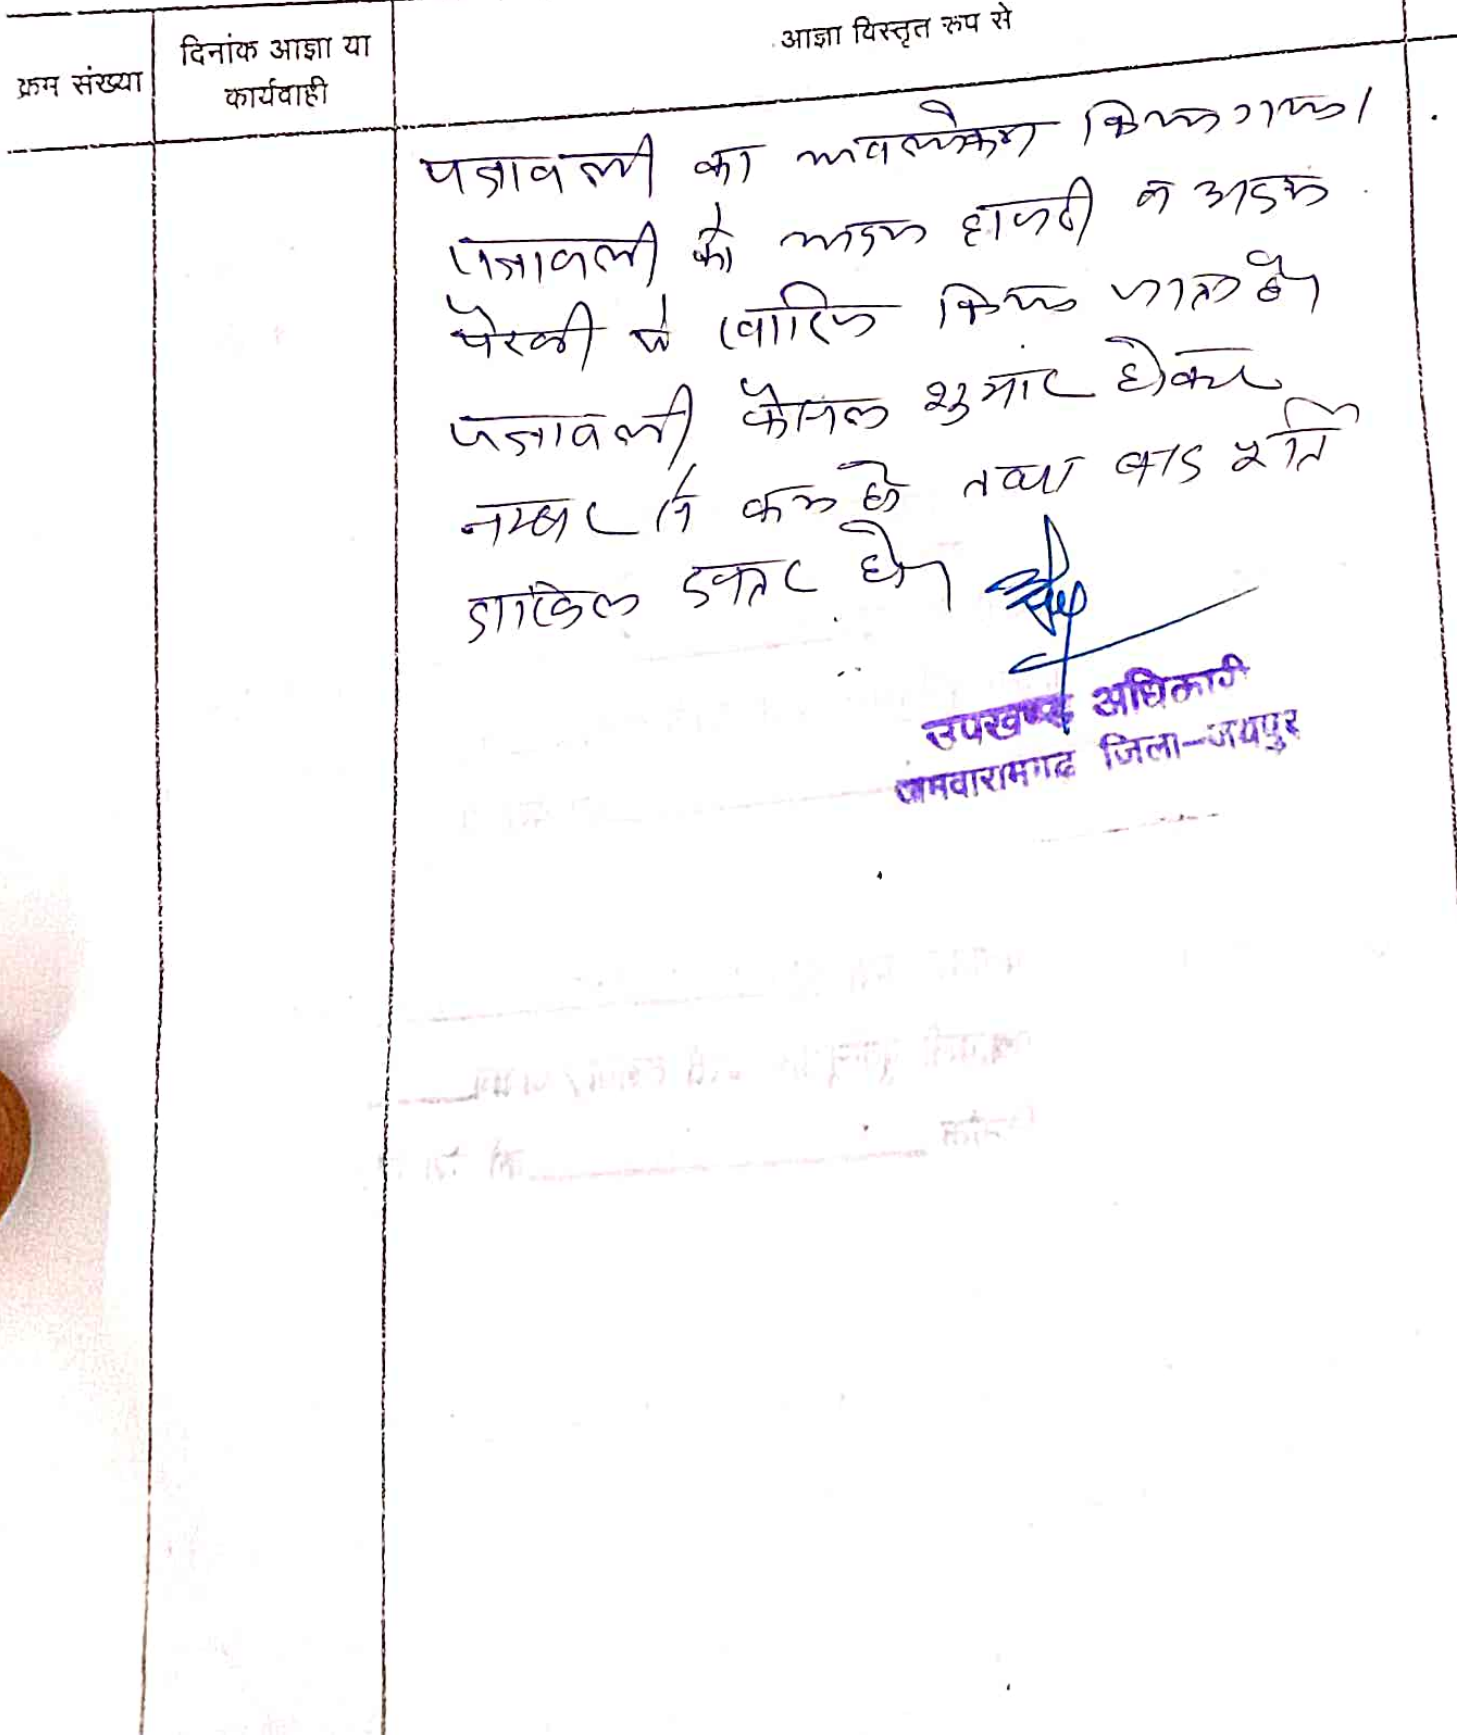 क्रम संख्या
दिनांक आज्ञा या
कार्यवाही
आज्ञा विस्तृत रूप से
पत्रावली का अवलोकन किया गया।
पत्रावली को अदम हाजरी व अदम
पैरवी में खारिज किया जाता है।
पत्रावली फैसल शुमार होकर
नम्बर से कम हो तथा बाद पूर्ति
दाखिल दफ्तर हो।
उपखण्ड अधिकारी
जमवारामगढ जिला-जयपुर